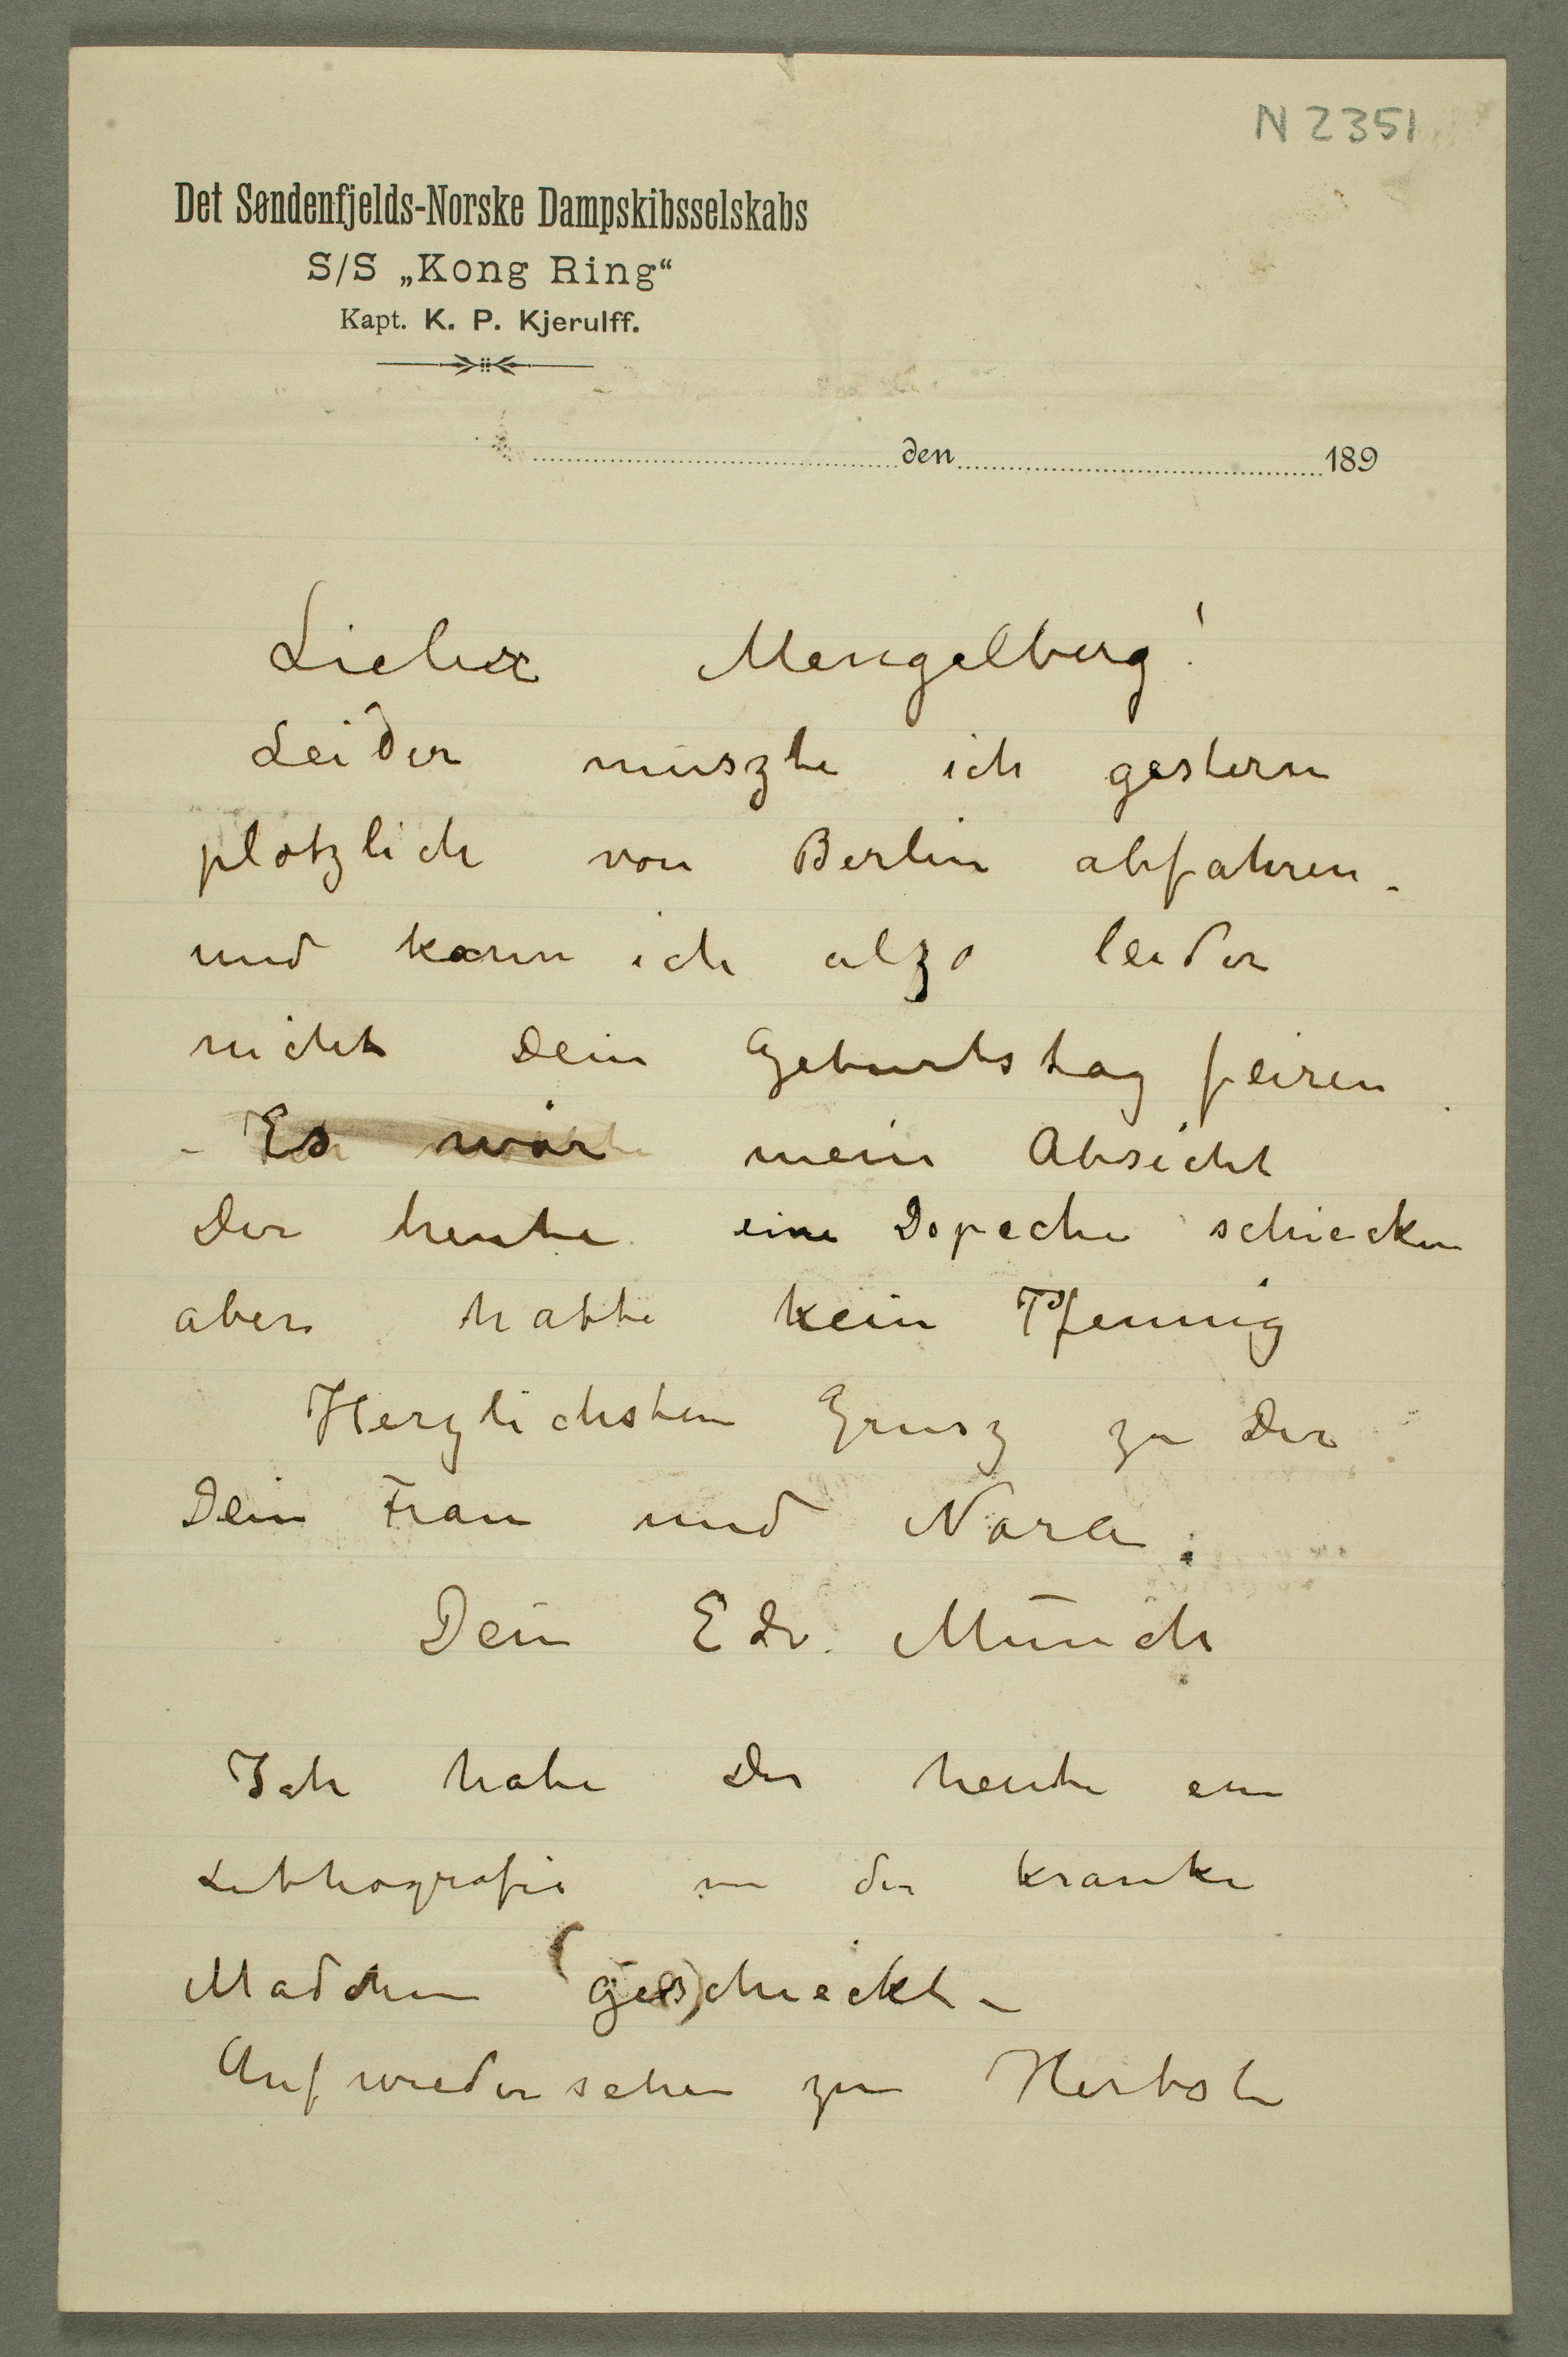 N 2351
Det Søndenfjelds-Norske Dampskibsselskabs
S/S „Kong Ring“
Kapt. K. P. Kjerulff.
den 189
Lieber Mengelberg!
Leider muszte ich gestern
plötzlich von Berlin abfahren –
und kann ich alzo leider
nicht Dein Geburtstag feiren
– Es war mein Absicht
Dir heute eine Depeche schiecken
aber hatte kein Pfennig
Herzlichsten Grusz zu Dir
Dein Frau und Nora.
Dein Edv. Munch
Ich habe Dir heute ein
Lithografie von der kranke
Mädchen (ges)chieckt –
Auf wiedersehen zum Herbste